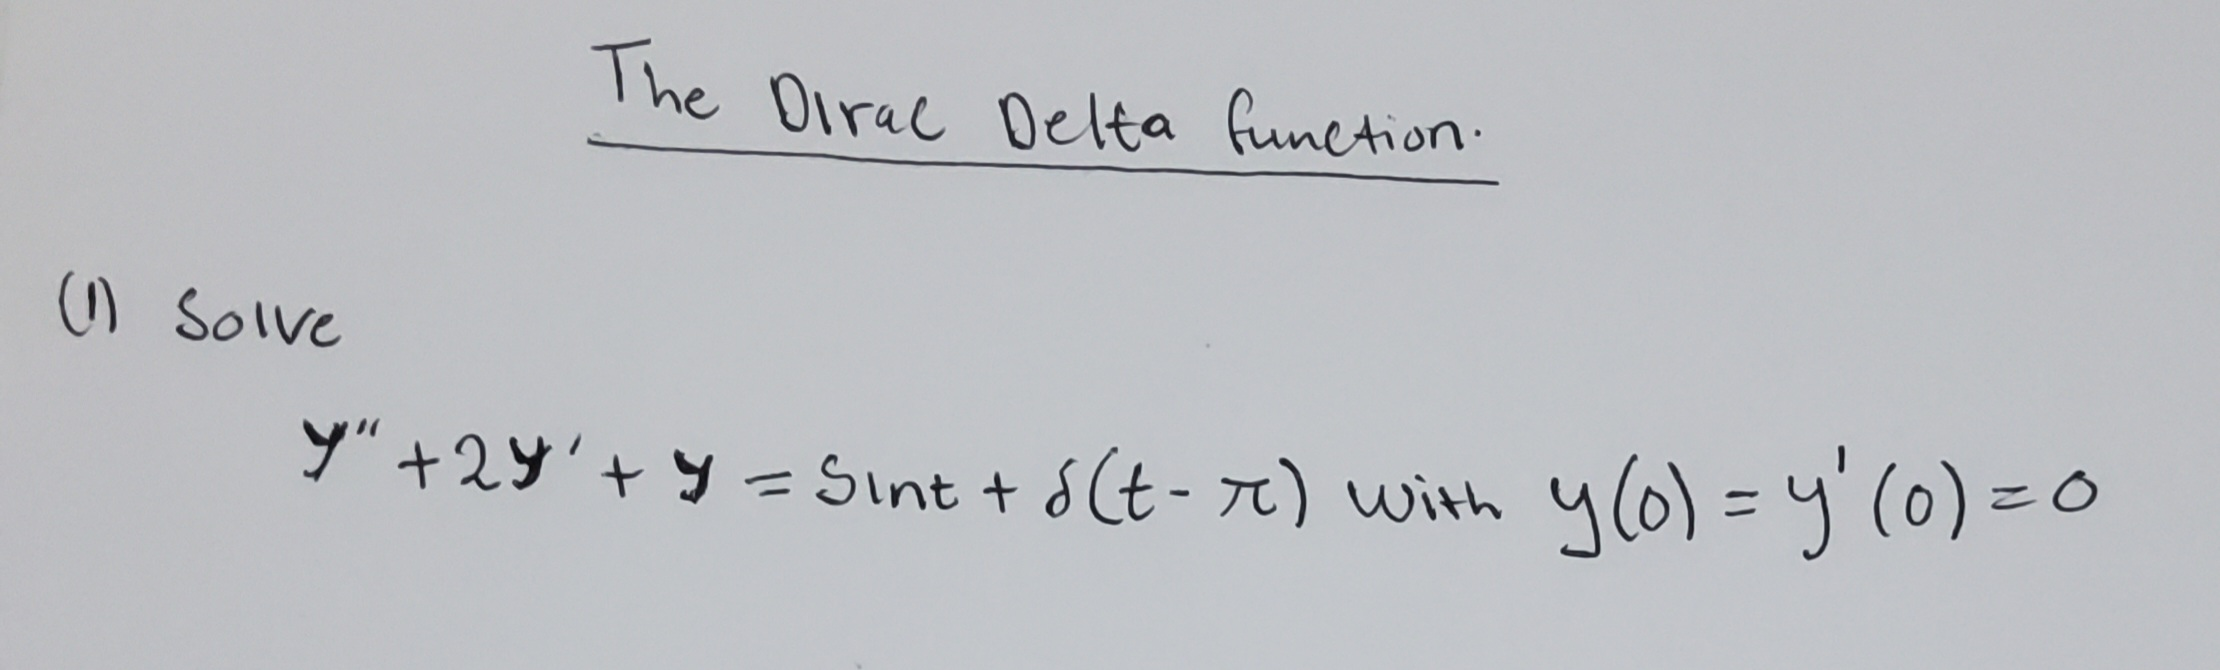 The Dirac Delta function.
(1) Solve
y" + 2y' + y = Sint + δ(t - π) with y(0) = y'(0) = 0